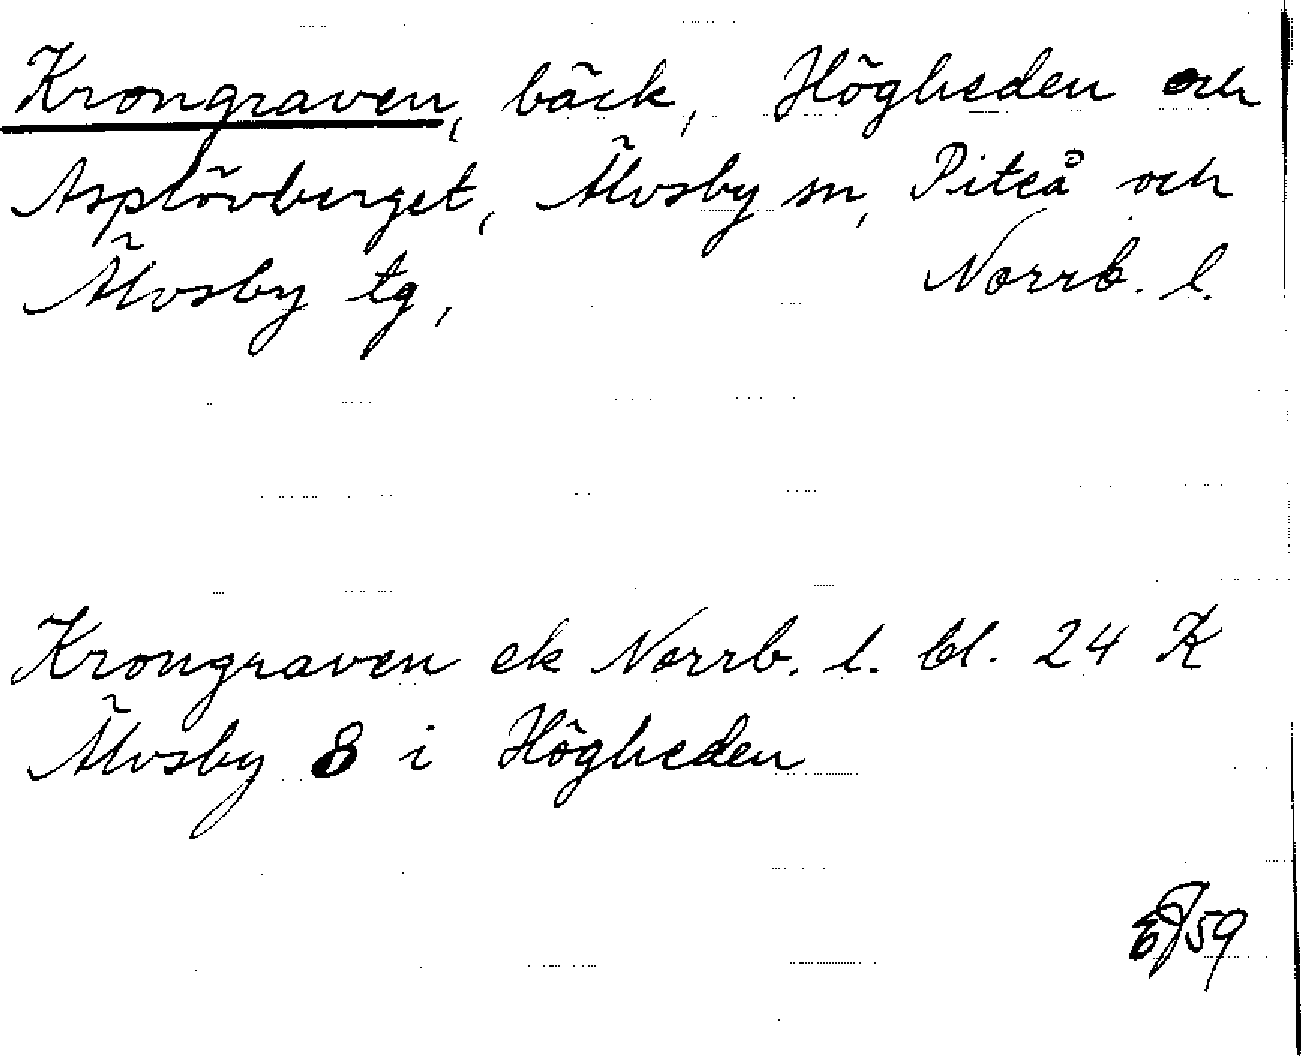 Krongraven, bäck, Högheden och
Asplövberget, Älvsby sn, Piteå och
Älvsby tg, Norrb. l.
Krongraven ek Norrb. l. bl. 24 K
Älvsby 8 i Högheden
/59